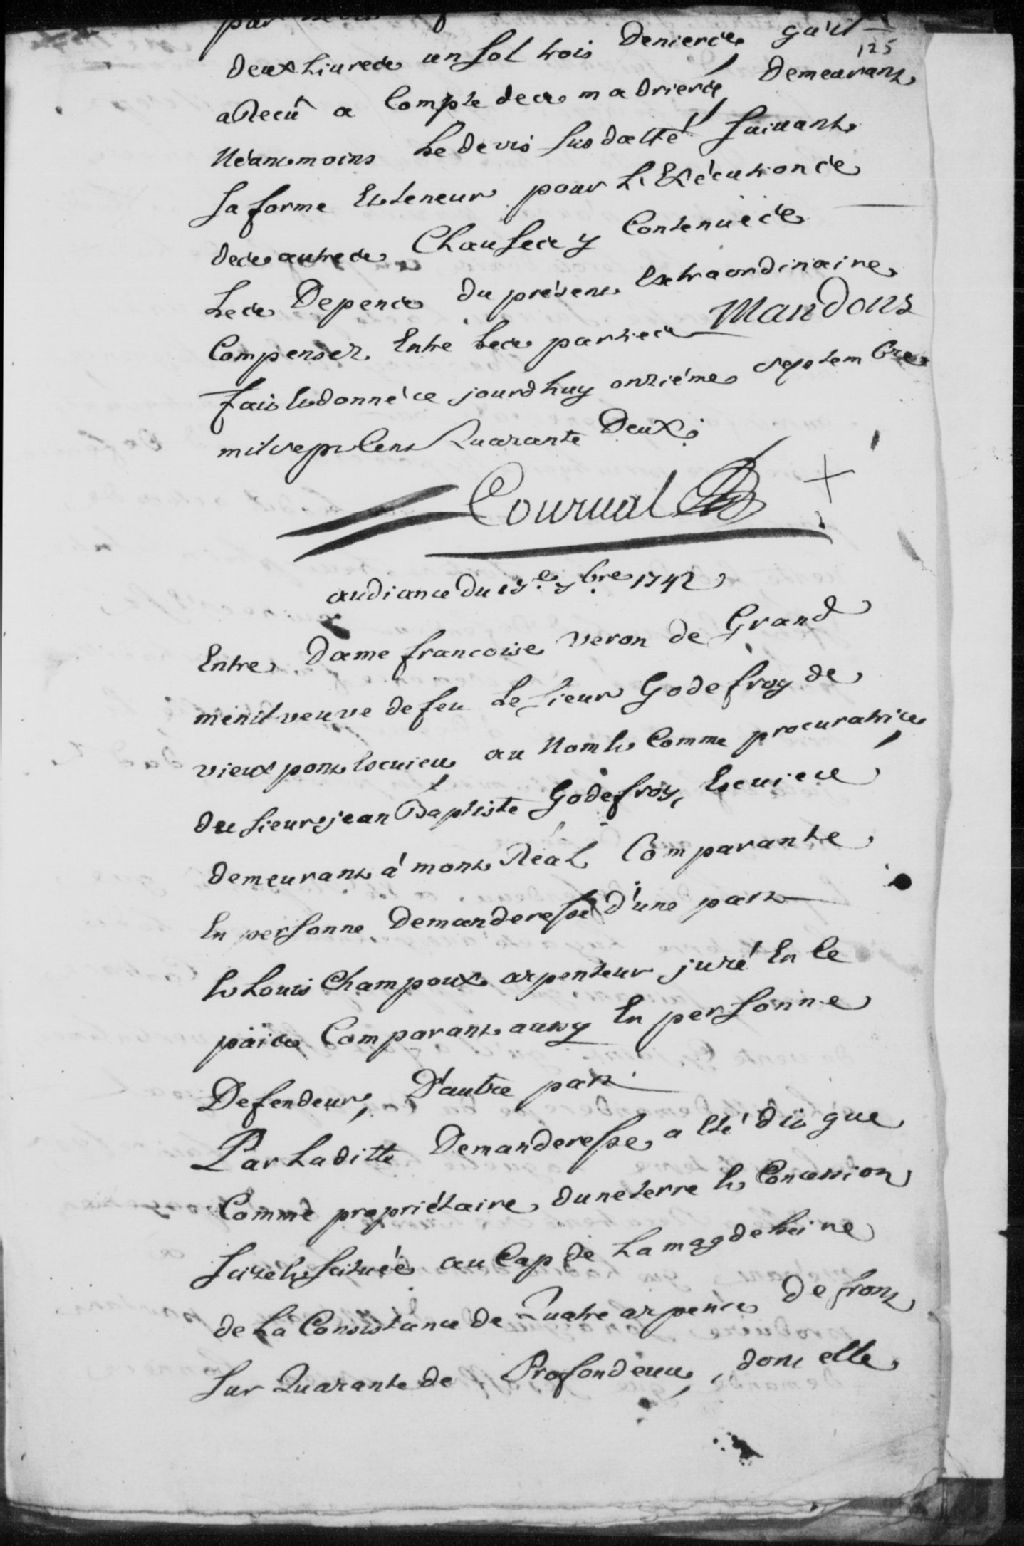 par
125
deux Livres un sol trois deniers qu'il
a Reçû a Compte des madriers, Demeurant
Néanmoins Le devis susdatté suivant
sa forme Et teneur pour L'Exécution de
des autres Chauses y Contenües
Les Depences du présent Extraordinaire
Compensez Entre Les parties Mandons
fait Et donné ce jourdhuy onziéme septembre
mil sept Cent Quarante Deux.
Courual
audiance du 7bre 1742
Entre Dame francoise Veron de Grand
ménil veuve de feu Le Sieur Godefroy de
vieuxpont Escuier, au Nom Et Comme procuratrice
du sieur jean Baptiste Godefroy, Escuier
demeurant á mont Réal Comparante
En personne Demanderesse d'une part
Et Louis Champoux arpenteur juré En ce
païes Comparant aussy En personne
Defendeur, D'autre part.
Par Laditte Demanderesse a Eté dit que
Comme propriétaire dune terre Et Concession
size Et située au Cap de Lamagdeleine
de La Consistance de Quatre arpents de front
sur Quarante de Profondeur, dont elle